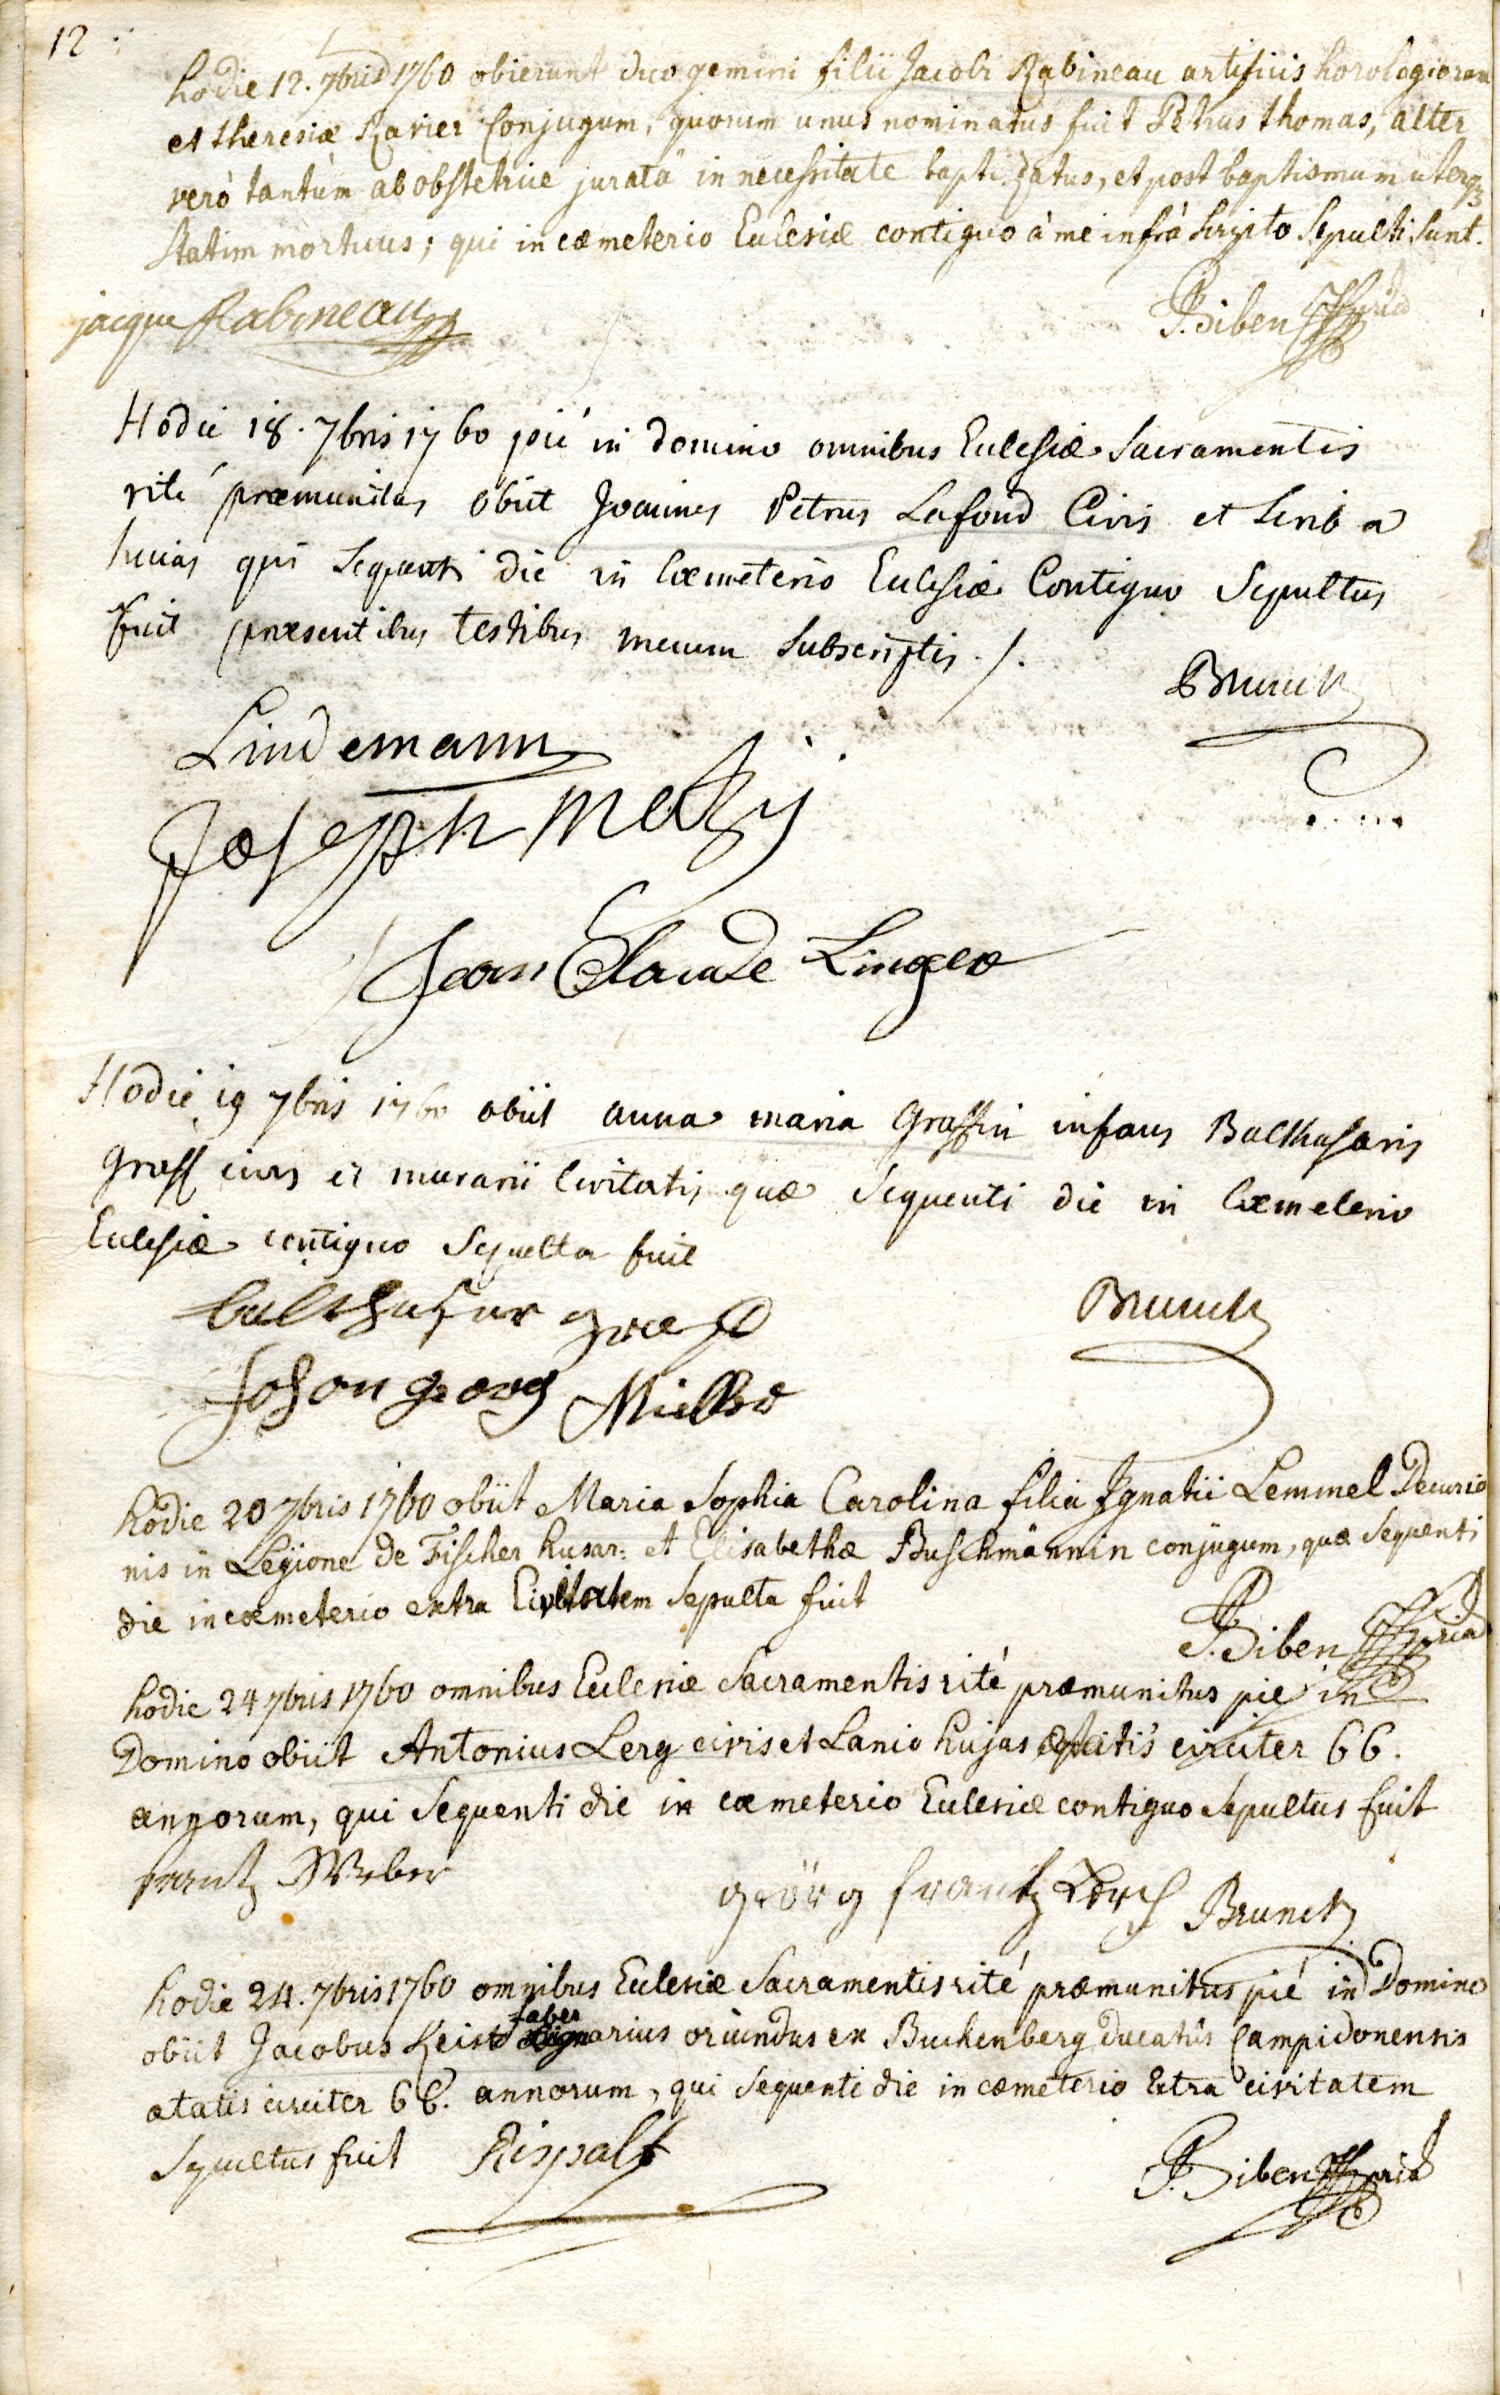 12
hodie 12. 7bris 1760 obierunt duo gemini filii Jacobi Rabineau artificis horologiorum
et theresiæ Ravier Conjugum, quorum unus nominatus fuit Petrus thomas, alter
verò tantùm ab obstetrice juratâ in necessitate baptizatus, et post baptismum uterq3
statim mortuus; qui in cœmeterio Ecclesiæ contiguo à me infrà scripto Sepulti sunt.
jacque Rabineau
P. Biben
Hodie 18. 7bris 1760 pié in domino omnibus Ecclesiæ Sacramentis
rité præmunitus obiit Joannes Petrus Lafond Civis et Scriba
huias qui sequenti die in Cœmeterio Ecclesiæ Contiguo Sepultus
fuit præsentibus testibus mecum subscriptis ./.
Brunck
Lindemann
Joseph Metzj
Jean Claude Linger
Hodie 19 7bris 1760 obiit anna maria Graffin infans Balthasaris
Graff civis et murarii Civitatis quæ sequenti die in Cœmeterio
Ecclesiæ contiguo Sepulta fuit
balthasar graff
Brunck
Johan georg Müller
hodie 20 7bris 1760 obiit Maria Sophia Carolina filia Ignatii Lemmel Decurio
nis in Legione de Fischer husar: et Elisabethæ Buschmännin conjugum, quæ sequenti
die in cœmeterio extra Civitatem sepulta fuit
P. Biben
hodie 24 7bris 1760 omnibus Ecclesiæ Sacramentis rité præmunitus pié in
Domino obiit Antonius Lerg civis et Lanio hujas ætatis circiter 66.
annorum, qui sequenti die in cœmeterio Ecclesiæ contiguo sepultus fuit
frantz Weber
geörg frantz Lerch Brunck
hodie 24. 7bris 1760 omnibus Ecclesiæ Sacramentis rité præmunitus pié in Domino
faber
obiit Jacobus Keist Lignarius oriundus ex Buchenberg ducatûs Campidonensis
ætatis circiter 66. annorum, qui sequenti die in cœmeterio Extra civitatem
Sepultus fuit Rispalt
P. Biben